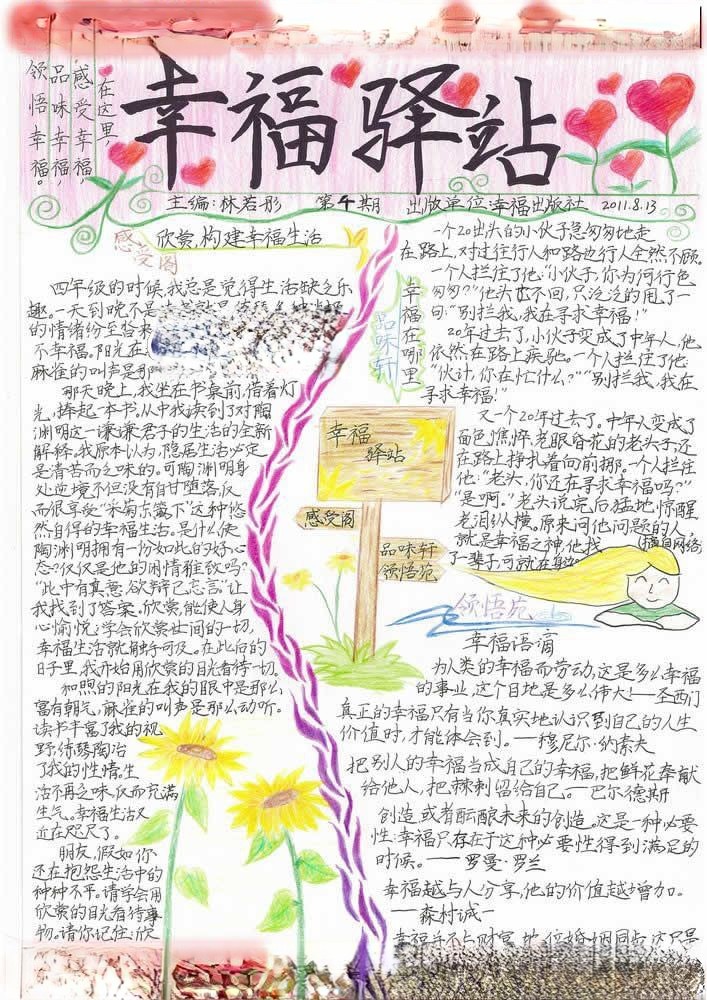 在这里，
感受幸福，
品味幸福，
领悟幸福。
幸福驿站
主编：林若彤 第4期 出版单位：幸福出版社 2011.8.13
感受阁
欣赏,构建幸福生活
四年级的时候,我总是觉得生活缺乏乐
趣。一天到晚不是
的情绪纷至沓来
不幸福。阳光在
麻雀的叫声是那
那天晚上,我坐在书桌前,借着灯
光,捧起一本书,从中我读到了对陶
渊明这一谦谦君子的生活的全新
解释。我原本认为,隐居生活必定
是清苦而乏味的。可陶渊明身
处逆境不但没有自甘堕落,反
而很享受“采菊东篱下”这种悠
然自得的幸福生活。是什么使
陶渊明拥有一份如此的好心
态?仅仅是他的闲情雅致吗?
“此中有真意,欲辩已忘言”让
我找到了答案。欣赏,能使人身
心愉悦;学会欣赏世间的一切,
幸福生活就触手可及。在此后的
日子里,我开始用欣赏的目光看待一切。
和煦的阳光在我的眼中是那么
富有朝气,麻雀的叫声是那么动听。
读书丰富了我的视
野,待琴陶冶
了我的性情。生
活不再乏味,反而充满
生气。幸福生活又
近在咫尺了。
朋友,假如你
还在抱怨生活中的
种种不平。请学会用
欣赏的目光看待事
物。请你记住:欣
品味轩
幸福在哪里
一个20出头的小伙子急匆匆地走
在路上,对过往行人和路边行人全然不顾。
一个人拦住了他:“小伙子,你为何行色
匆匆?”他头也不回,只泛泛的甩了一
句:“别拦我,我在寻求幸福!”
20年过去了,小伙子变成了中年人,他
依然在路上疾驰。一个人拦住了他:
“伙计,你在忙什么?”“别拦我,我在
寻求幸福!”
又一个20年过去了。中年人变成了
面色憔悴,老眼昏花的老头子,还
在路上挣扎着向前挪。一个人拦住
他:“老头,你还在寻求幸福吗?”
“是啊。”老头说完后猛地惊醒,
老泪纵横。原来问他问题的人
就是幸福之神,他找
了一辈子,可就在身边。
(摘自网络)
幸福
驿站
感受阁
品味轩
领悟苑
领悟苑
幸福语滴
为人类的幸福而劳动,这是多么幸福
的事业,这个目地是多么伟大!——圣西门
真正的幸福只有当你真实地认识到自己的人生
价值时,才能体会到。——穆尼尔·纳索夫
把别人的幸福当成自己的幸福,把鲜花奉献
给他人,把棘刺留给自己。——巴尔德斯
创造,或者酝酿未来的创造。这是一种必要
性:幸福只存在于这种必要性得到满足的
时候。——罗曼·罗兰
幸福越与人分享,他的价值越增加。
——森村诚一